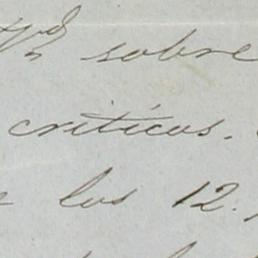 sobre
críticos.
los 12.